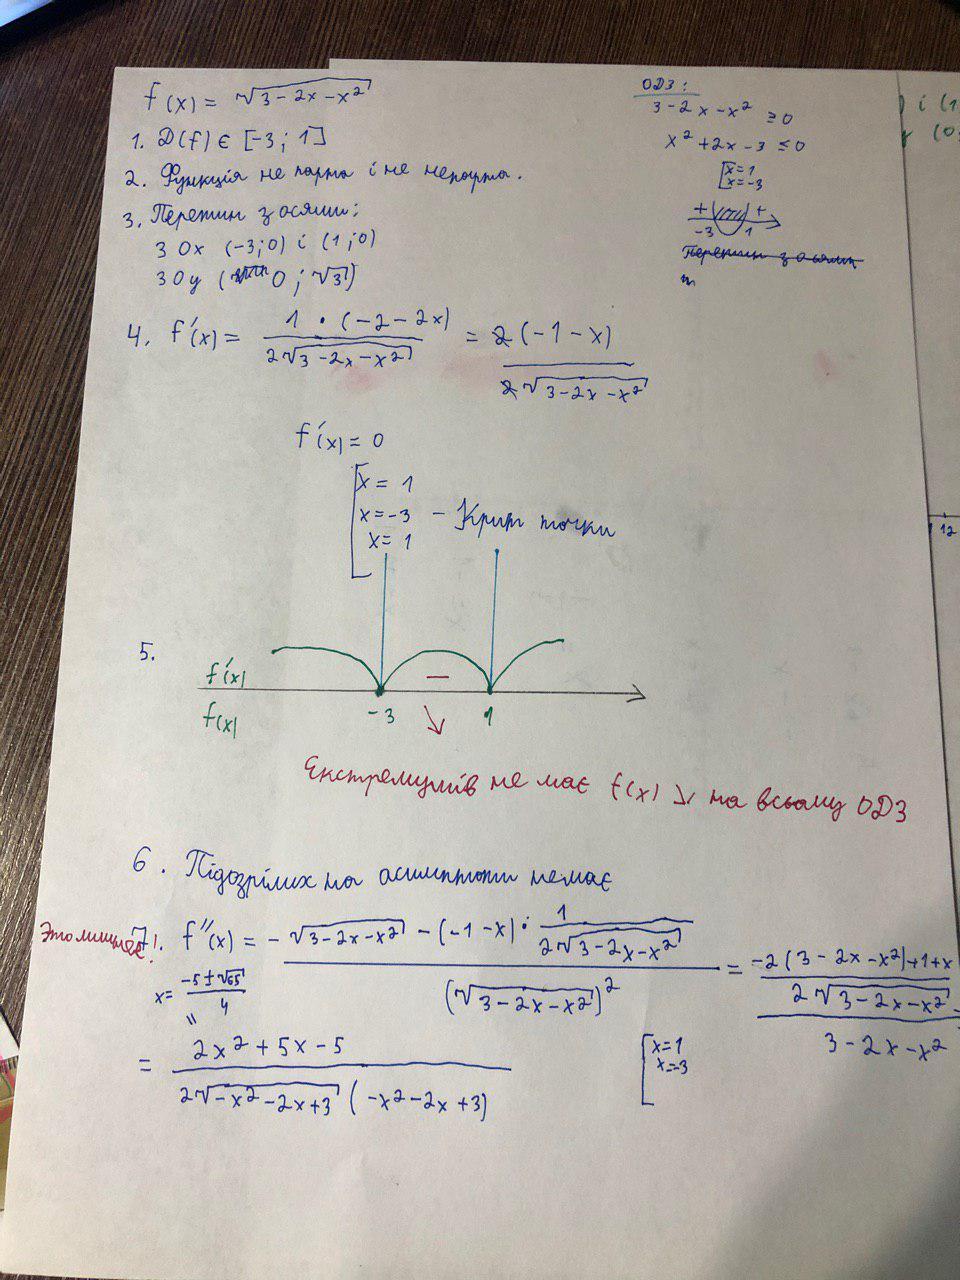 f(x) = √(3 - 2x - x²)
1. D(f) ∈ [-3; 1]
2. Функція не парна і не непарна.
3. Перетин з осями:
З Ox (-3;0) і (1;0)
З Oy (0; √3)
ОДЗ:
3 - 2x - x² ≥ 0
x² + 2x - 3 ≤ 0
[x = 1
x = -3
+ +
-3 1
Перетин з осями
4. f'(x) = 1 · (-2 - 2x) / 2√(3 - 2x - x²) = 2(-1 - x) / 2√(3 - 2x - x²)
f'(x) = 0
[x = 1
x = -3 - Крит точки
x = 1
5.
f'(x) −
f(x) -3 ↘ 1
Екстремумів не має f(x) ↘ на всьому ОДЗ
6. Підозрілих на асимптоти немає
7. f''(x) = (-√(3 - 2x - x²) - (-1 - x) · 1 / 2√(3 - 2x - x²)) / (√(3 - 2x - x²))² = ((-2(3 - 2x - x²) + 1 + x) / 2√(3 - 2x - x²)) / 3 - 2x - x²
x = (-5 ± √65) / 4
= (2x² + 5x - 5) / 2√(-x² - 2x + 3) (-x² - 2x + 3)
[x = 1
x = -3
12